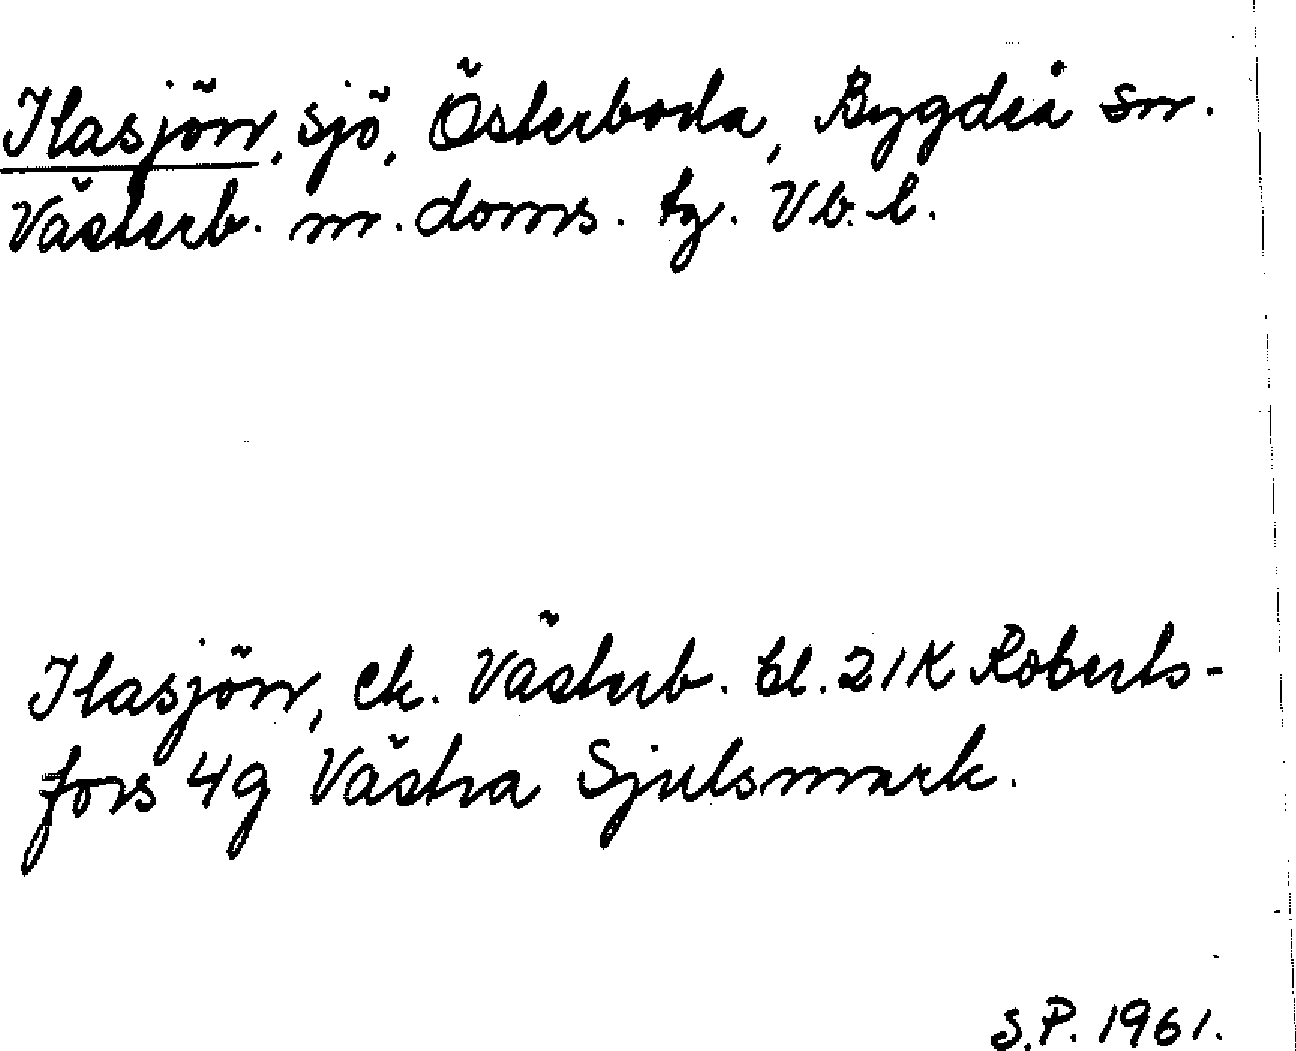 Ilasjön, sjö, Österboda, Bygdeå sn.
Västerb. m. doms. tg. Vb. l.
Ilasjön, ek. Västerb. bl. 21K Roberts-
fors 4g Västra Sjulsmark.
S.P. 1961.